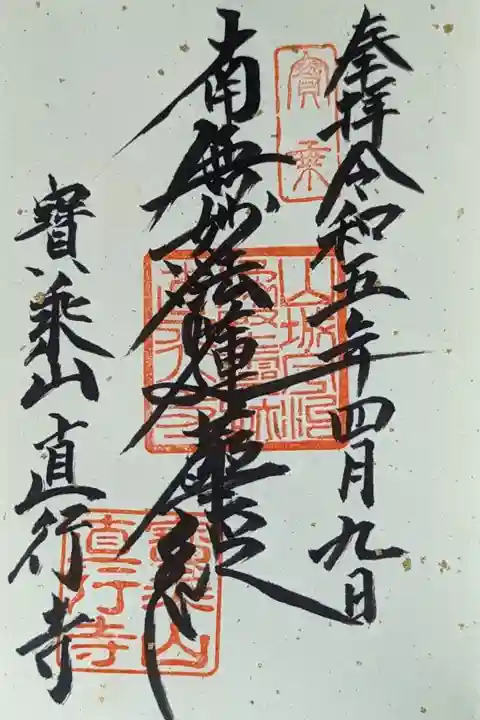 奉拝令和五年四月九日
寳乗
南無妙法蓮華経
寳乘山直行寺
寳乘山
直行寺